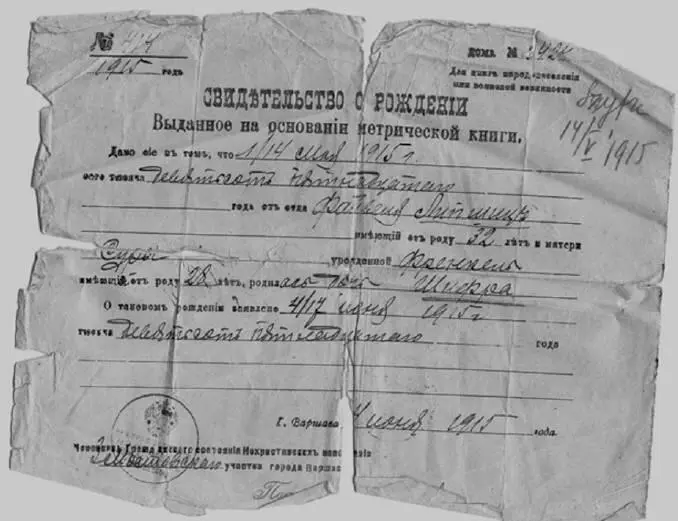 № 414
Дома № 3424
1915 годъ
Для книгъ народонаселенія
или воинской повинности
СВИДѢТЕЛЬСТВО О РОЖДЕНІИ
Выданное на основаніи метрической книги.
14/V 1915
Дано сіе въ томъ, что 1/14 мая 1915 г.
сего тысяча девятьсотъ пятнадцатаго
года отъ отца Липшицъ
имѣющій отъ роду 32 лѣтъ и матери
Суры урожденной Френкель
имѣющій отъ роду 28 лѣтъ, родилась дочь Шифра
О таковомъ рожденіи заявлено 4/17 іюня 1915 г
тысяча девятьсотъ пятнадцатаго года
Г. Варшава, 4 іюня 1915 года.
Чиновникъ Гражданскаго состоянія Нехристіанскихъ
участка города Варшавы